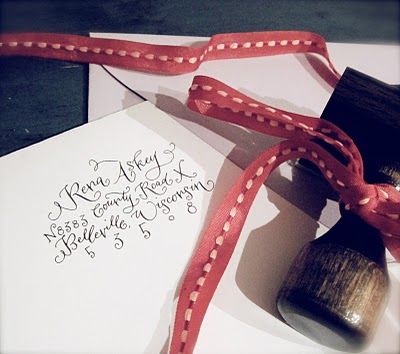 Rena Askey
N8383 County Road X
Belleville, Wisconsin
53508